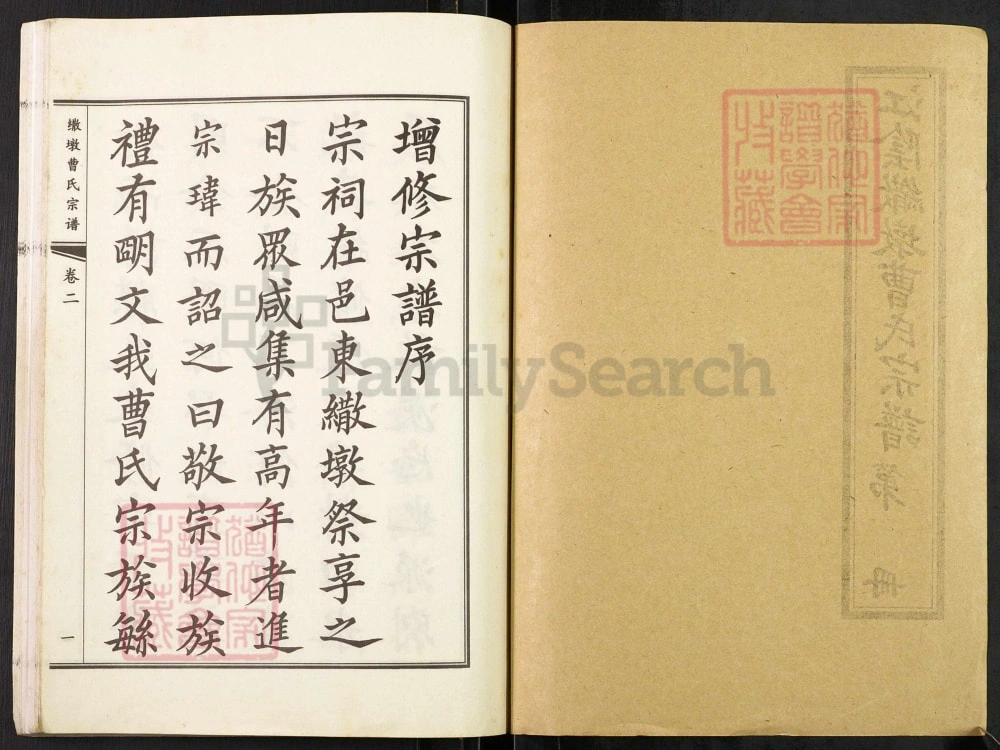 增修宗譜序
宗祠在邑東繖墩祭享之
日族眾咸集有高年者進
宗瑋而詔之曰敬宗收族
禮有明文我曹氏宗族繇
繖墩曹氏宗谱
卷二
一
江陰繖墩曹氏宗譜 第 冊
FamilySearch